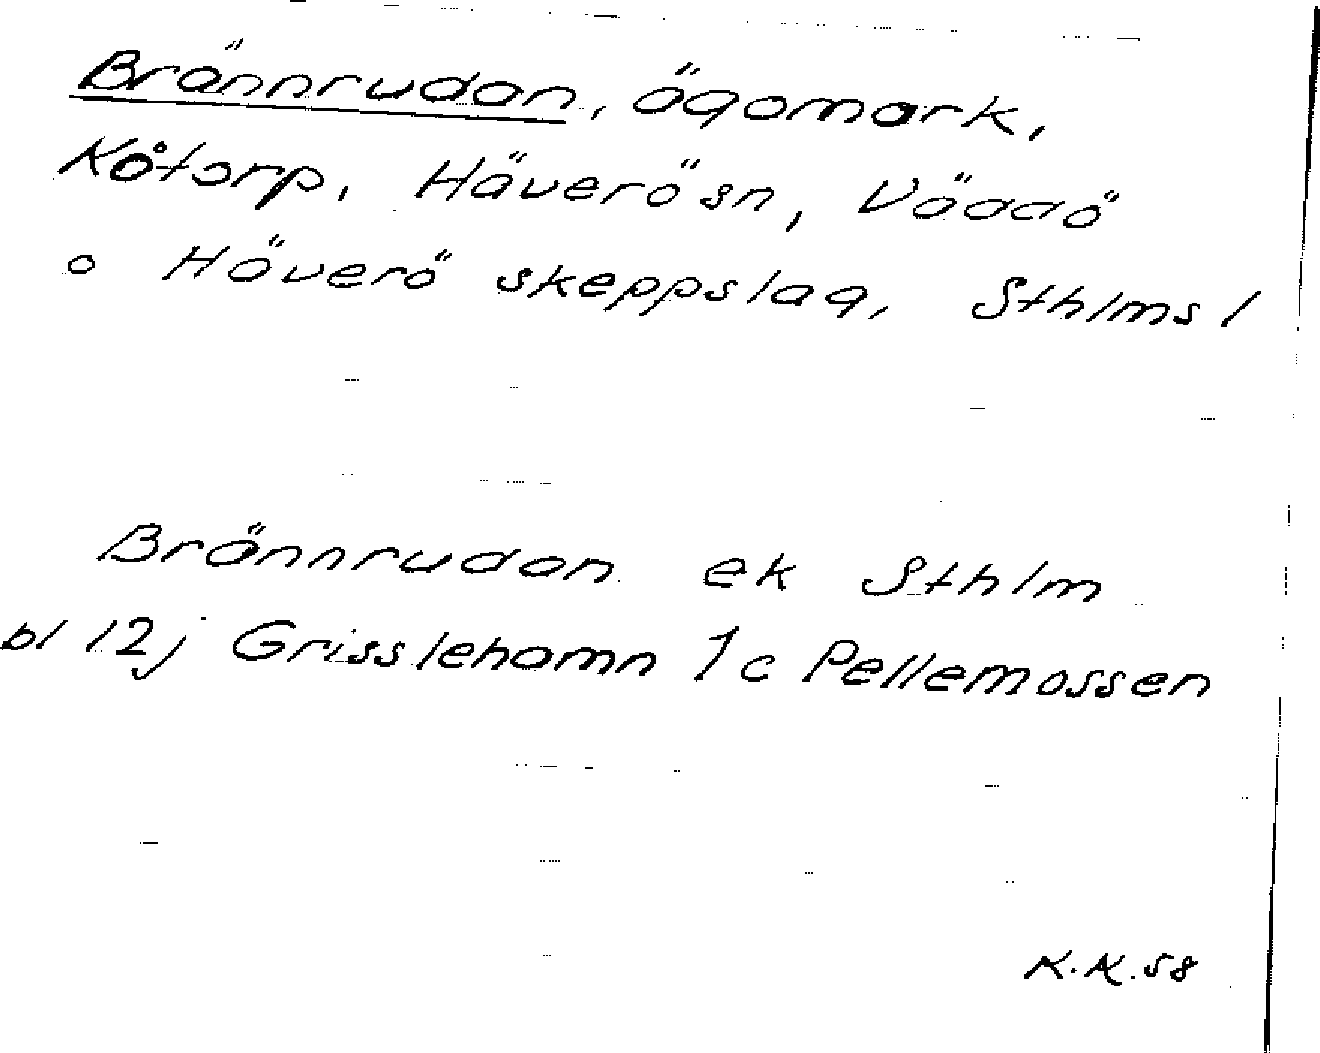 Brännrudan, ägomark,
Kåtorp, Häverö sn, Väddö
o Häverö skeppslag, Sthlms l
Brännrudan ek Sthlm
bl 12j Grisslehamn 1c Pellemossen
K.K. 58